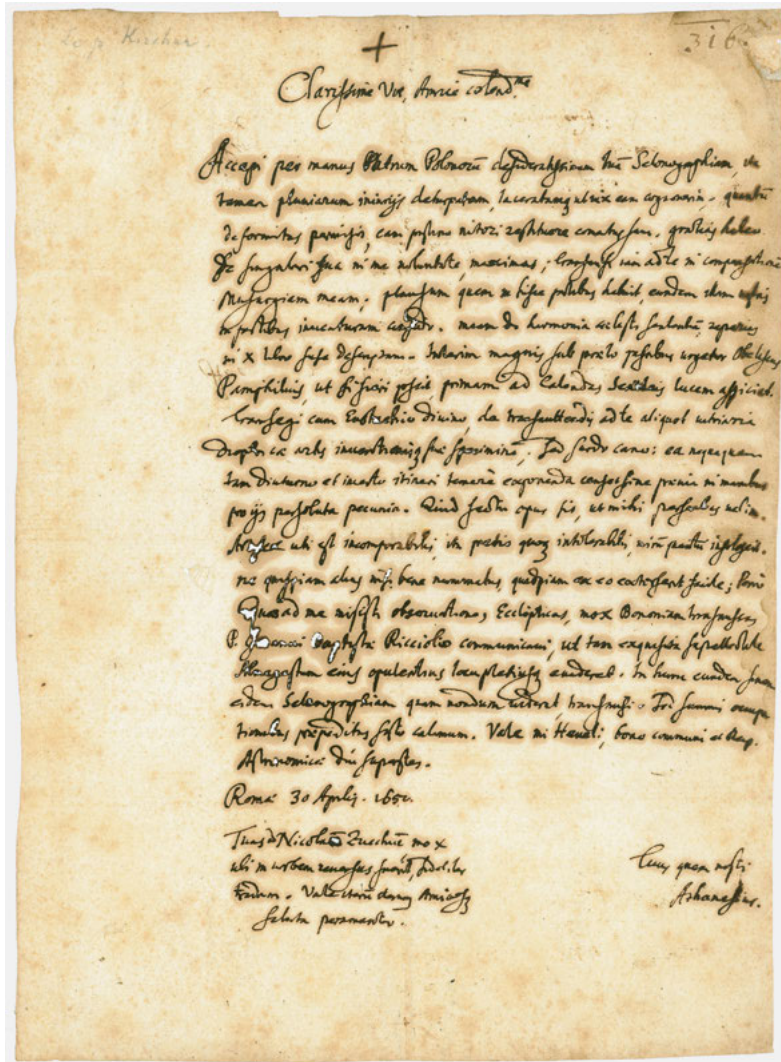 P. Kircher.
316
+
Clarissime Vir, Amice colend.me
Accepi per manus Patrum Polonorū desideratissimam tuā Selenographiam, ita
tamen pluviarum iniurijs deturpatam, ut vix eam cognoverim. quantū
deformitas permisit, eam pristino nitori restituere conatus sum. gratias habeo
singulari tua in me voluntate, maximas; transmisi iam ad te in compensationē
Musurgiam meam; plausum quem in hisce partibus habuit, eundem illam vestris
in partibus inventuram. meam de harmonia caelesti sententiā, reperies
in X libro fuse descriptam. Interim magnis sub praelo passibus urgetur Obeliscus
Pamphilius, ut si fieri possit, primam ad Calendas Sextiles lucem aspiciat.
Transegi cum Eustachio Divino, de transmittendis ad te aliquot vitrariae
Dioptricae artis inventionisq suae specimina, sed surdo cano: ea nequaquam
tam diuturno et incerto itineri temere exponenda censet sine praevia in manibus
pro ijs persoluta pecunia. Quid facto opus sit, ut mihi perscribas velim.
uti est incomparabilis, ita pretij quoq intolerabilis,
ne quispiam alius nisi bene nummatus, quidpiam ex eo facile; Porro
Quas ad me misisti observationes Eclipticas, mox Bononiam transmissas
P. Baptistae Ricciolio communicavi, ut tam exquisita supellectile
Almagestum eius opulentius locupletiusq evaderet. In hunc eundem finem
eidem Selenographiam quam nondum viderat, transmisi. Sed summis occupa
tionibus praepeditus sisto calamum. Vale mi Heveli, bono communi et Reip.
Astronomicae diu superstes.
Romae 30 Aprilis. 1650.
Tuas P Nicolaū Zucchiū mox
ubi in urbem reversus fuerit, fideliter
tradam. Amicosq
saluta peramanter.
Tuus quem nosti
Athanasius.